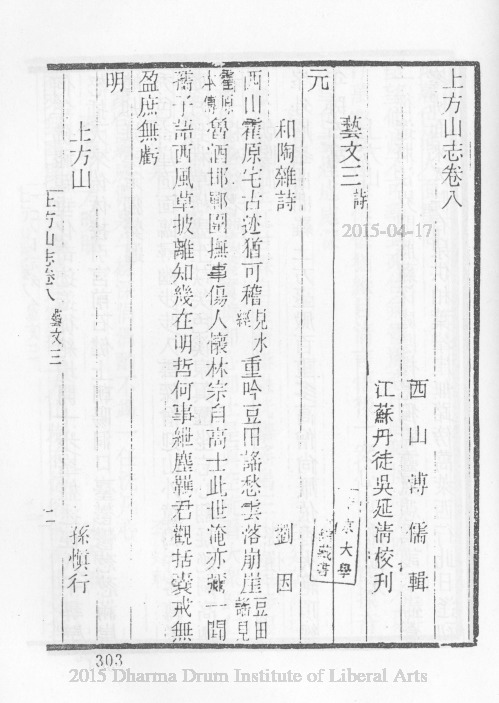 上方山志卷八
西山溥儒輯
江蘇丹徒吳延清校刊
藝文三 詩
元
和陶雜詩 劉因
西山霍原宅古迹猶可稽 見水經 重吟豆田謠愁雲落崩崖 豆田謠見
霍原本傳 魯酒邯鄲圍撫事傷人懷林宗自高士此世淹亦 一聞
孺子語西風草披離知幾在明哲何事紲塵羈君觀括囊戒無
盈庶無虧
明
上方山 孫慎行
上方山志卷八 藝文三 一
京大學
藏書
303
2015-04-17
2015 Dharma Drum Institute of Liberal Arts